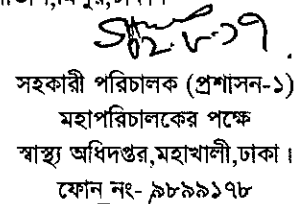 ০২.৮.১৭
সহকারী পরিচালক (প্রশাসন-১)
মহাপরিচালকের পক্ষে
স্বাস্থ্য অধিদপ্তর,মহাখালী,ঢাকা।
ফোন নং- ৯৮৯৯১৭৮